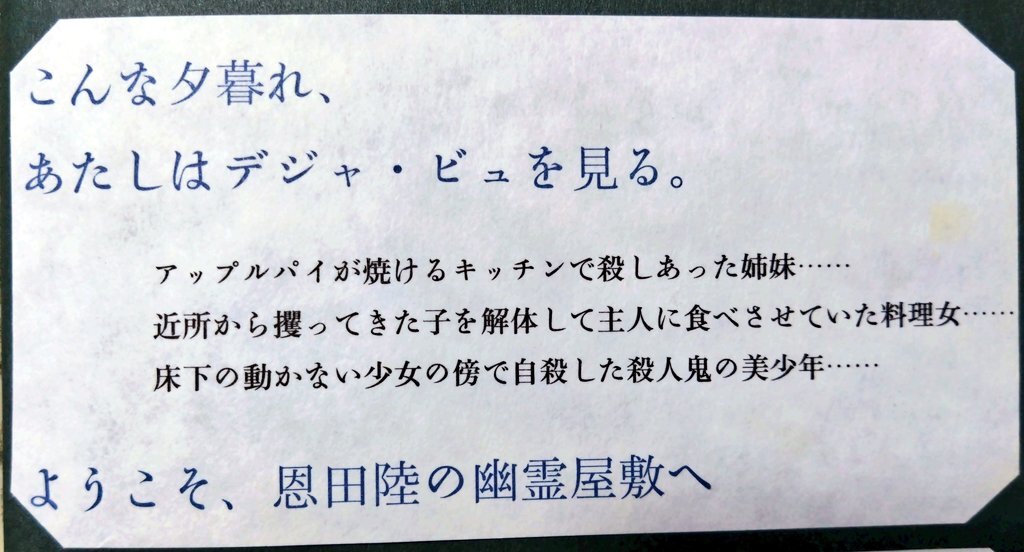 こんな夕暮れ、
あたしはデジャ・ビュを見る。
アップルパイが焼けるキッチンで殺しあった姉妹……
近所から攫ってきた子を解体して主人に食べさせていた料理女……
床下の動かない少女の傍で自殺した殺人鬼の美少年……
ようこそ、恩田陸の幽霊屋敷へ